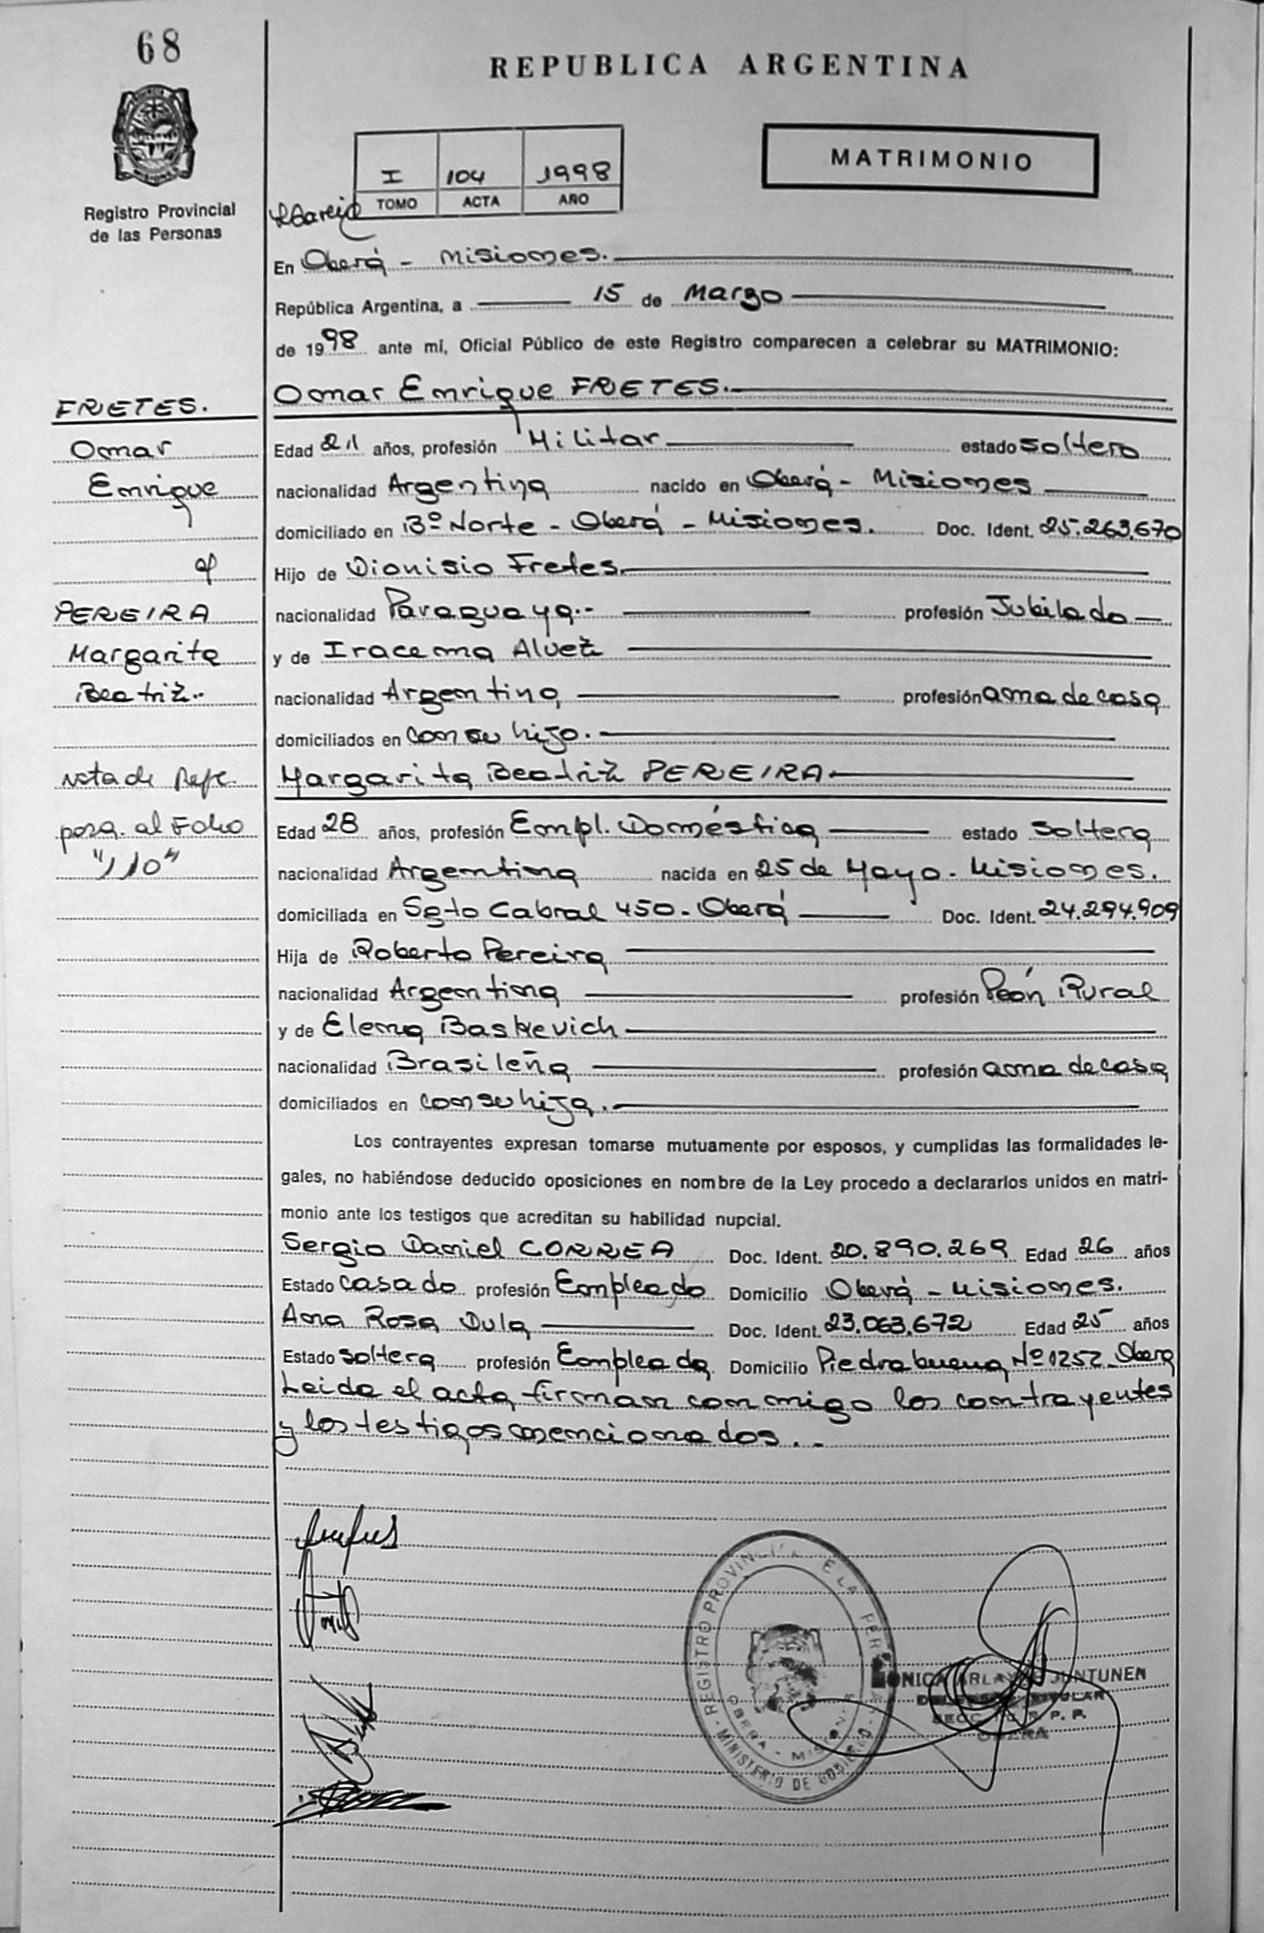 68
REPUBLICA ARGENTINA
Registro Provincial
de las Personas
I 104 1998
TOMO ACTA AÑO
MATRIMONIO
En Oberá - Misiones.
República Argentina, a 15 de Marzo
de 1998 ante mí, Oficial Público de este Registro comparecen a celebrar su MATRIMONIO:
Omar Enrique FRETES.
Edad 21 años, profesión Militar estado soltero
nacionalidad Argentina nacido en Oberá - Misiones
domiciliado en Bº Norte - Oberá - Misiones. Doc. Ident. 25.263.670
Hijo de Dionisio Fretes.
nacionalidad Paraguaya.- profesión Jubilado
y de Iracema Alvez
nacionalidad Argentina profesión ama de casa
domiciliados en con su hijo.
Margarita Beatriz PEREIRA
Edad 28 años, profesión Empl. Doméstica estado soltera
nacionalidad Argentina nacida en 25 de Mayo - Misiones.
domiciliada en Sgto Cabral 450 - Oberá Doc. Ident. 24.294.909
Hija de Roberto Pereira
nacionalidad Argentina profesión Peón Rural
y de Elena Baskevich
nacionalidad Brasileña profesión ama de casa
domiciliados en con su hija.
Los contrayentes expresan tomarse mutuamente por esposos, y cumplidas las formalidades le-
gales, no habiéndose deducido oposiciones en nombre de la Ley procedo a declararlos unidos en matri-
monio ante los testigos que acreditan su habilidad nupcial.
Sergio Daniel CORREA Doc. Ident. 20.890.269 Edad 26 años
Estado casado profesión Empleado Domicilio Oberá - Misiones.
Ana Rosa Dula Doc. Ident. 23.063.672 Edad 25 años
Estado soltera profesión Empleada Domicilio Piedrabuena Nº 1252 - Oberá
Leida el acta firman conmigo los contrayentes
y los testigos mencionados..-
FRETES.
Omar
Enrique
PEREIRA
Margarita
Beatriz.-
Nota de Refe.
pasa al Folio
"110"
REGISTRO PROVINCIAL DE LA PER
OBERA - MISIONES
MINISTERIO DE GOBIERNO
MONICA ARLA JUNTUNEN
TITULAR
SECC. R. P. P.
OBERA